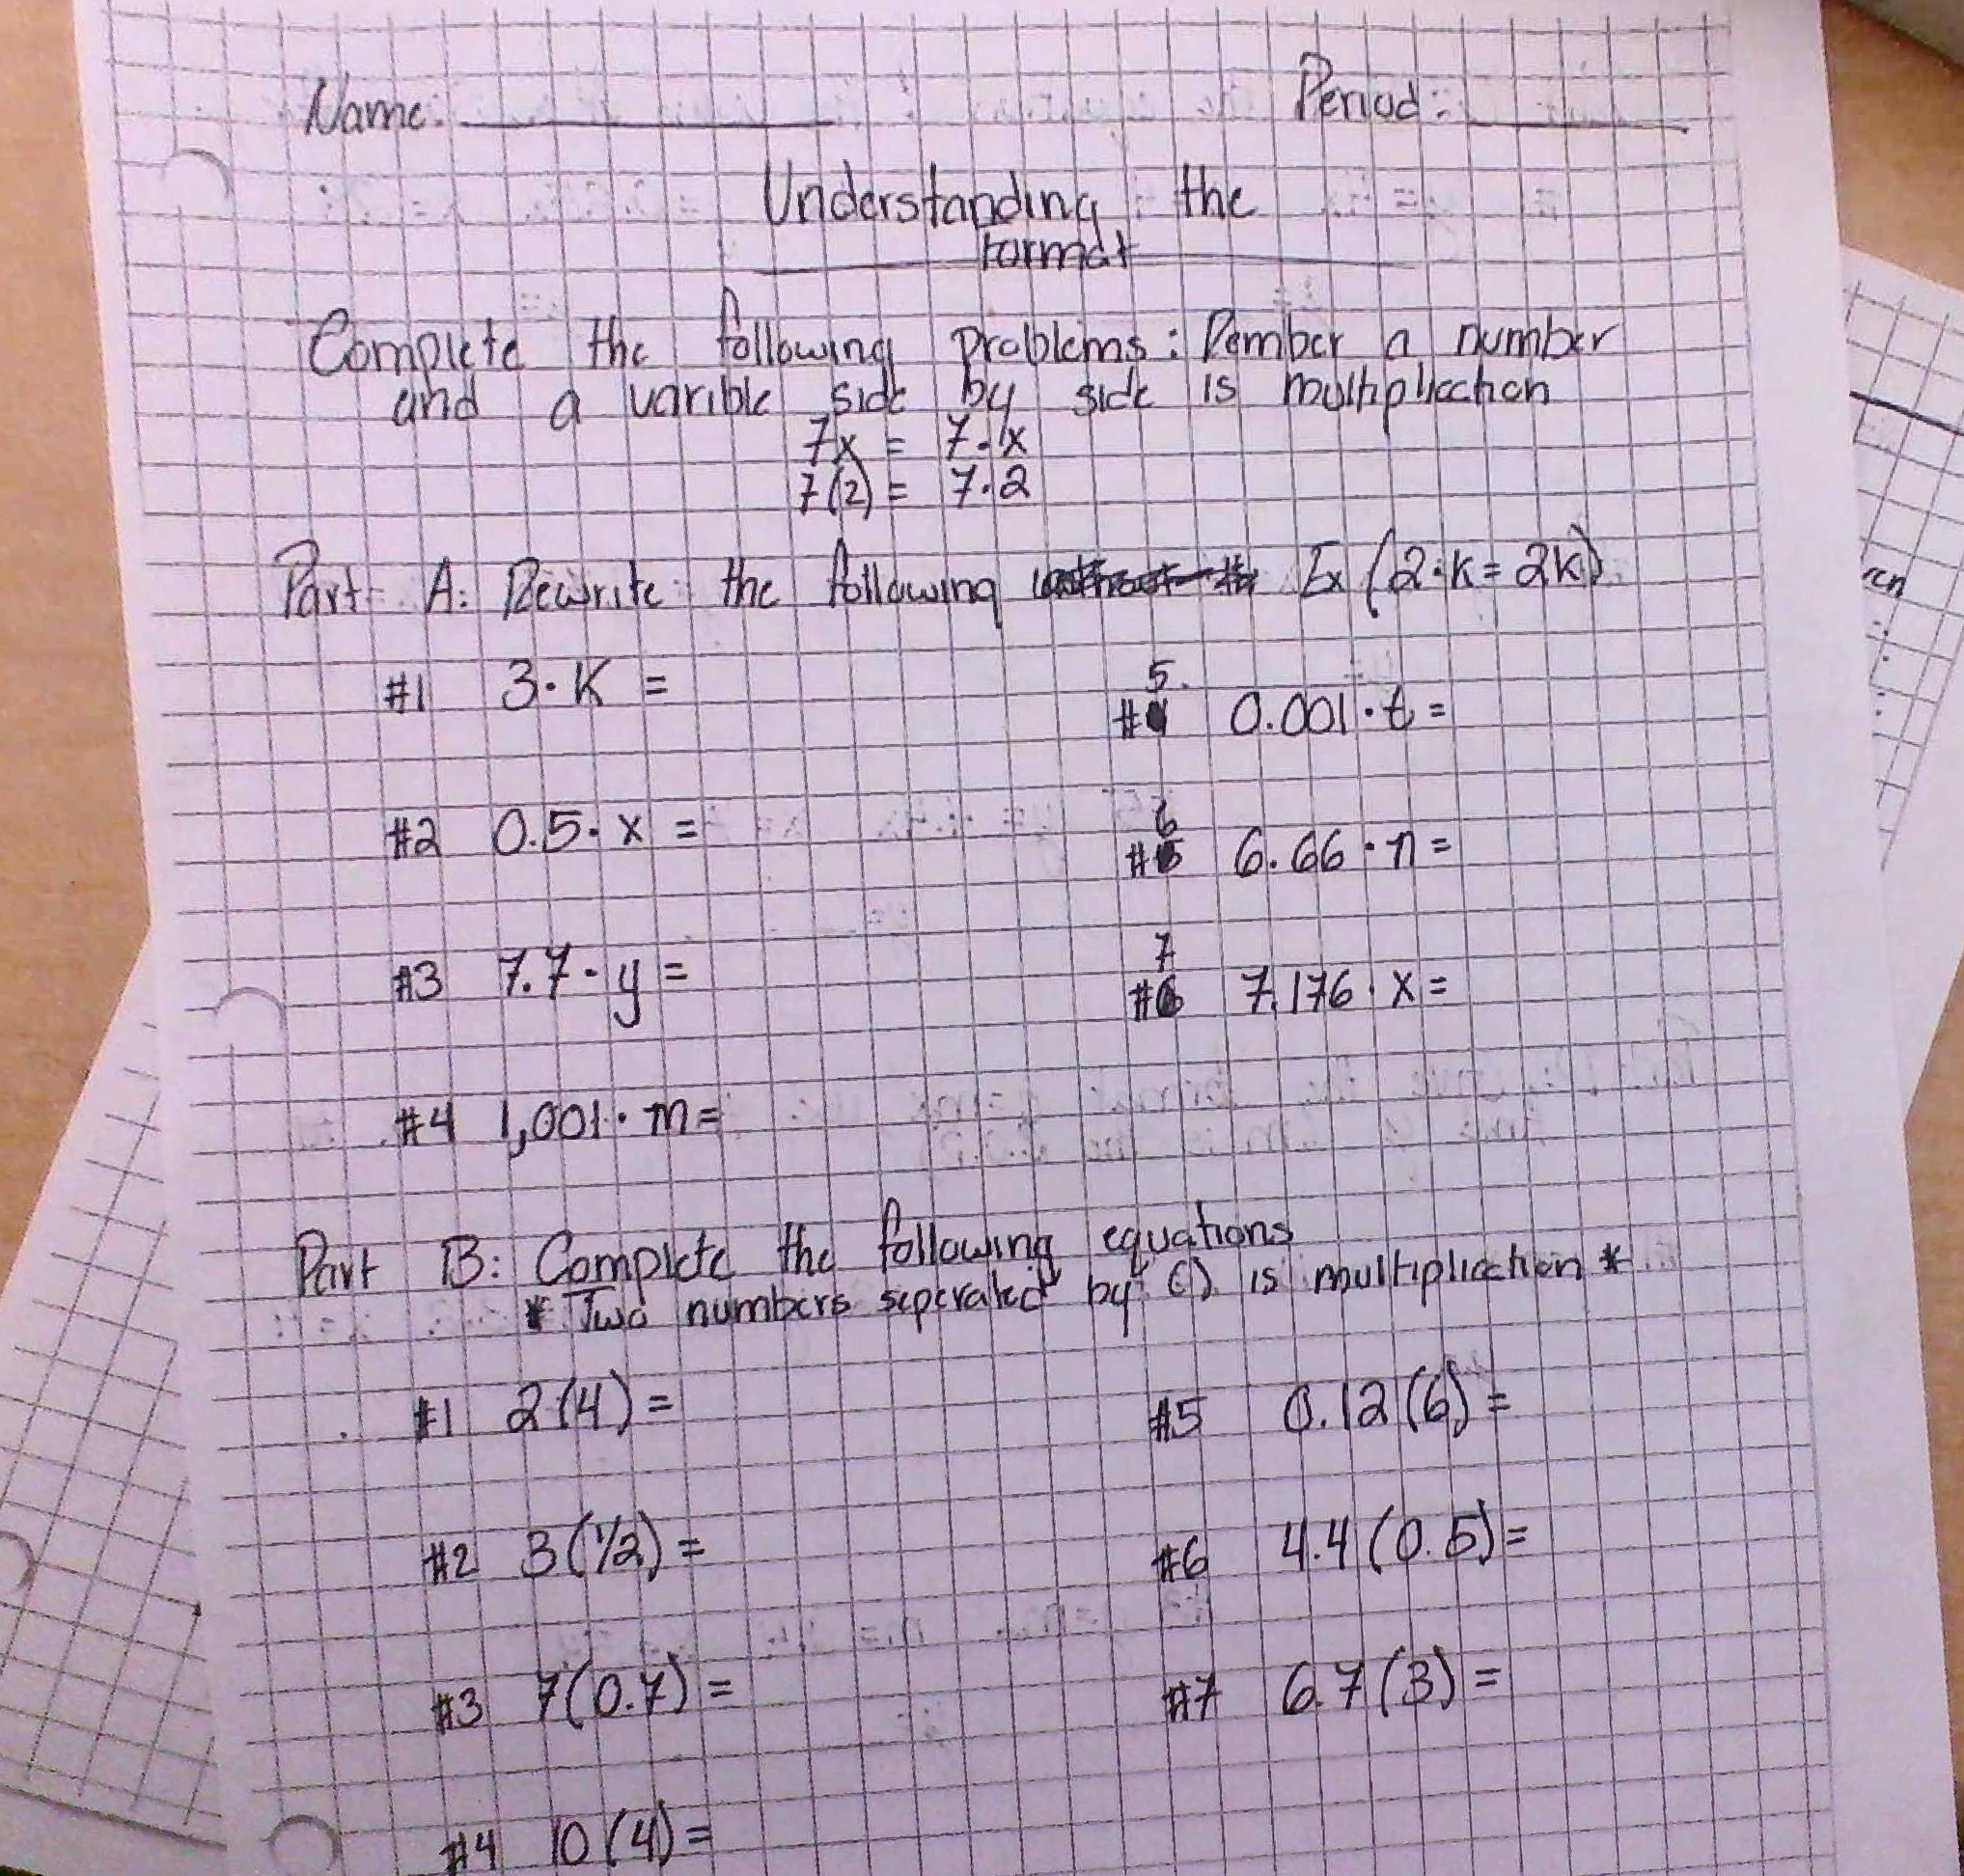 Name: Period:
Understanding the
Format
Complete the following problems: Rember a number
and a varible side by side is multiplication
7x = 7·x
7(2) = 7·2
Part A: Rewrite the following Ex (2·k = 2k)
#1 3·K =
5
# 0.001·t =
#2 0.5·x =
6
# 6.66·n =
#3 7.7·y =
7
#6 7.176·x =
#4 1,001·m =
Part B: Complete the following equations
* Two numbers seperated by () is multiplication *
#1 2(4) =
#5 0.12(6) =
#2 3(1/2) =
#6 4.4(0.5) =
#3 7(0.7) =
#7 6.7(3) =
#4 10(4) =